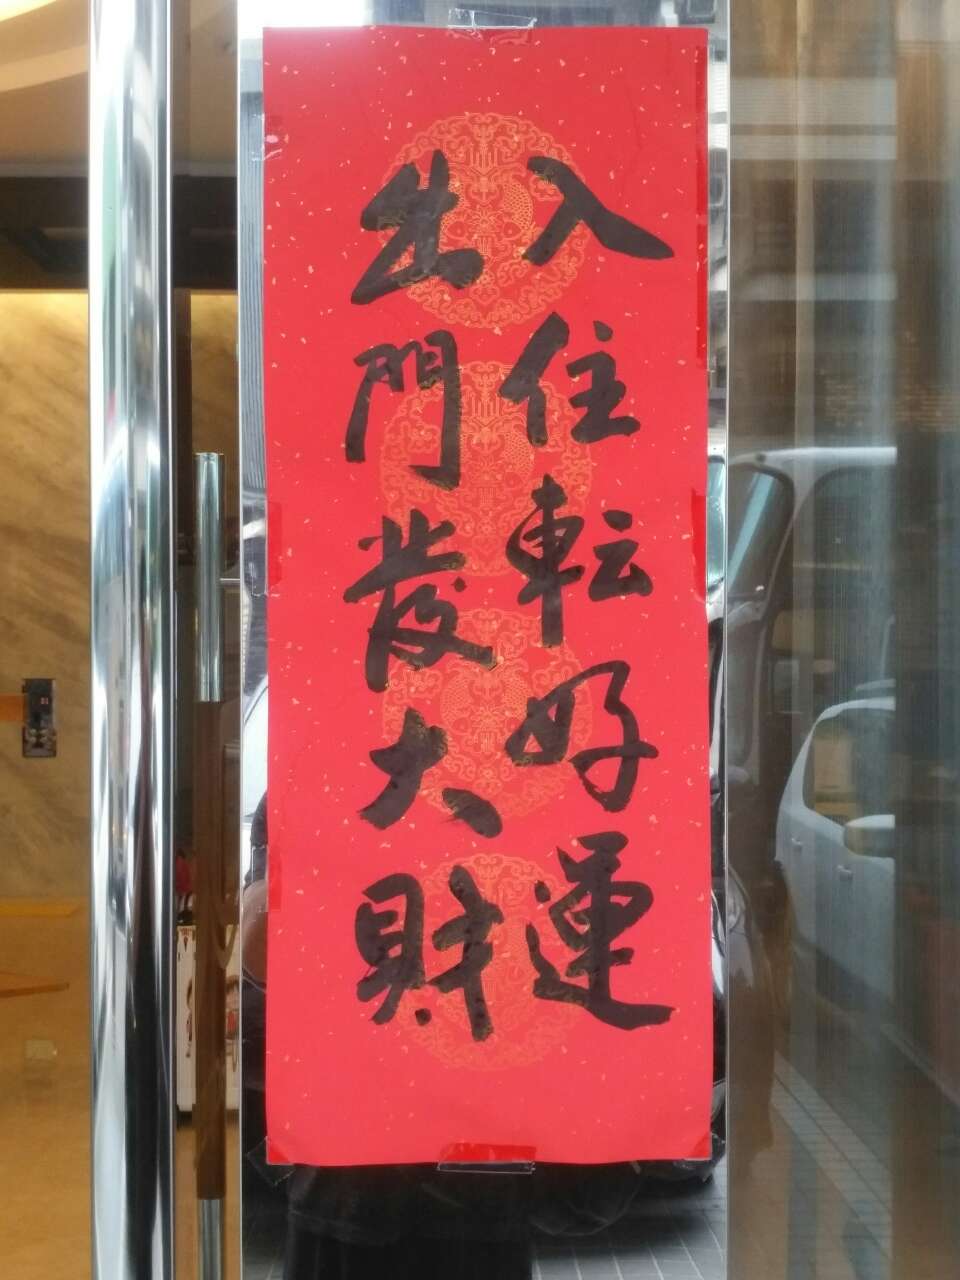 入住転好運
出門發大財